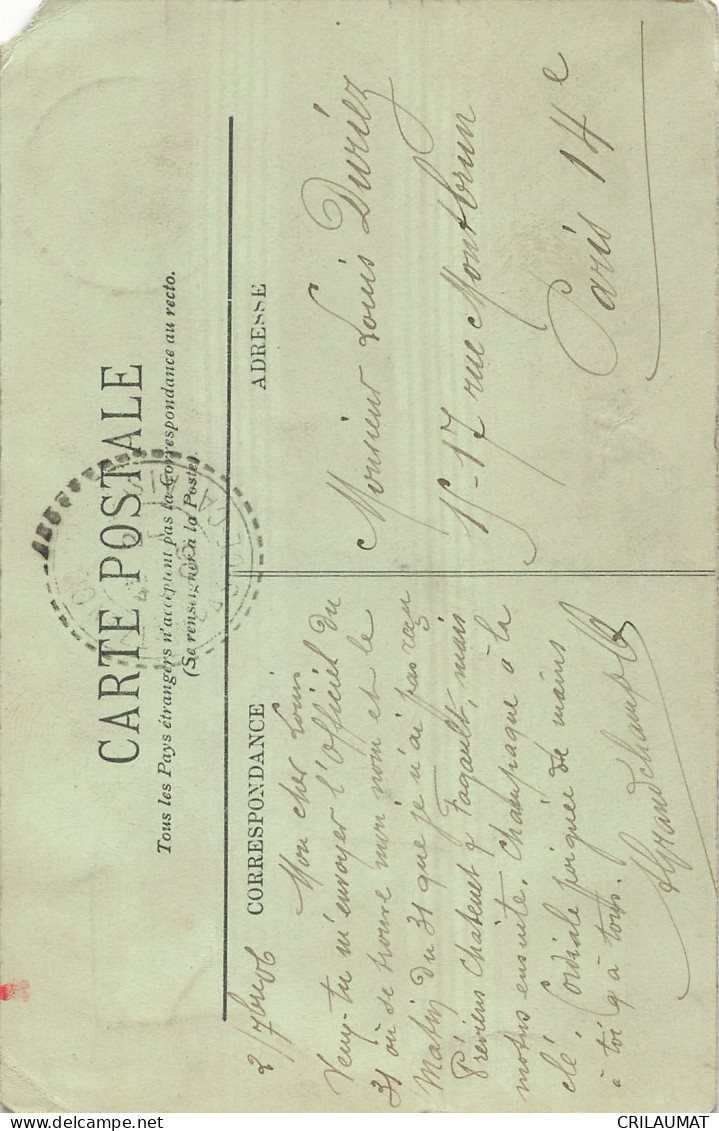 CARTE POSTALE
Tous les Pays étrangers n'acceptent pas la Correspondance au recto.
(Se renseigner à la Poste).
CORRESPONDANCE
ADRESSE
2/7bre 06
Mon cher Louis
Veux-tu m'envoyer l'Officiel du
31 où se trouve mon nom et le
Matin du 31 que je n'ai pas reçu
Préviens Chatenet & Fagault, mais
motus ensuite. Champagne à la
clé. Cordiale poignée de mains
à toi & à tous.
Grandchamp
Monsieur Louis Duriez
15-17 rue Montbrun
Paris 14e
CRILAUMAT